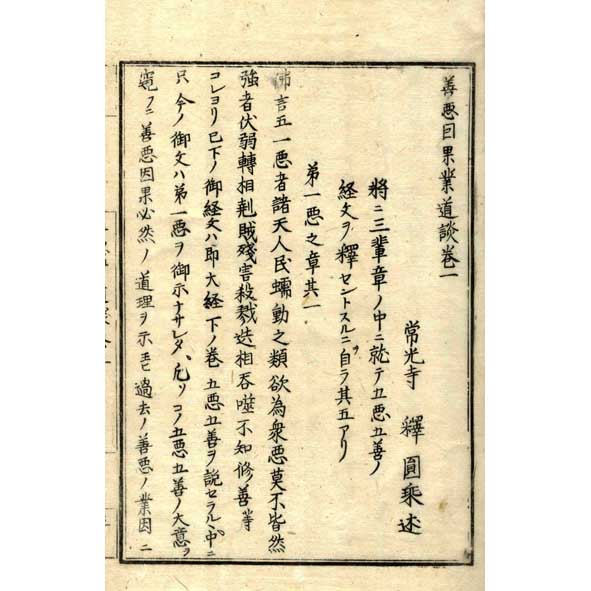 善悪因果業道談巻一
常光寺 釋圓乘述
將ニ三輩章ノ中ニ就テ五悪五善ノ
経文ヲ釋セントスルニ自ラ其五アリ
第一悪之章其一
佛言五一悪者諸天人民蠕動之類欲為衆悪莫不皆然
強者伏弱轉相剋賊殘害殺戮迭相吞噬不知修善等
コレヨリ已下ノ御経文ハ即大経下ノ巻五悪五善ヲ説セラルヽ中ニ
只今ノ御文ハ第一悪ヲ御示ナサレタ凡ソコノ五悪五善ノ大意ヲ
竊フニ善悪因果必然ノ道理ヲ示玉ヒ過去ノ善悪ノ業因ニ